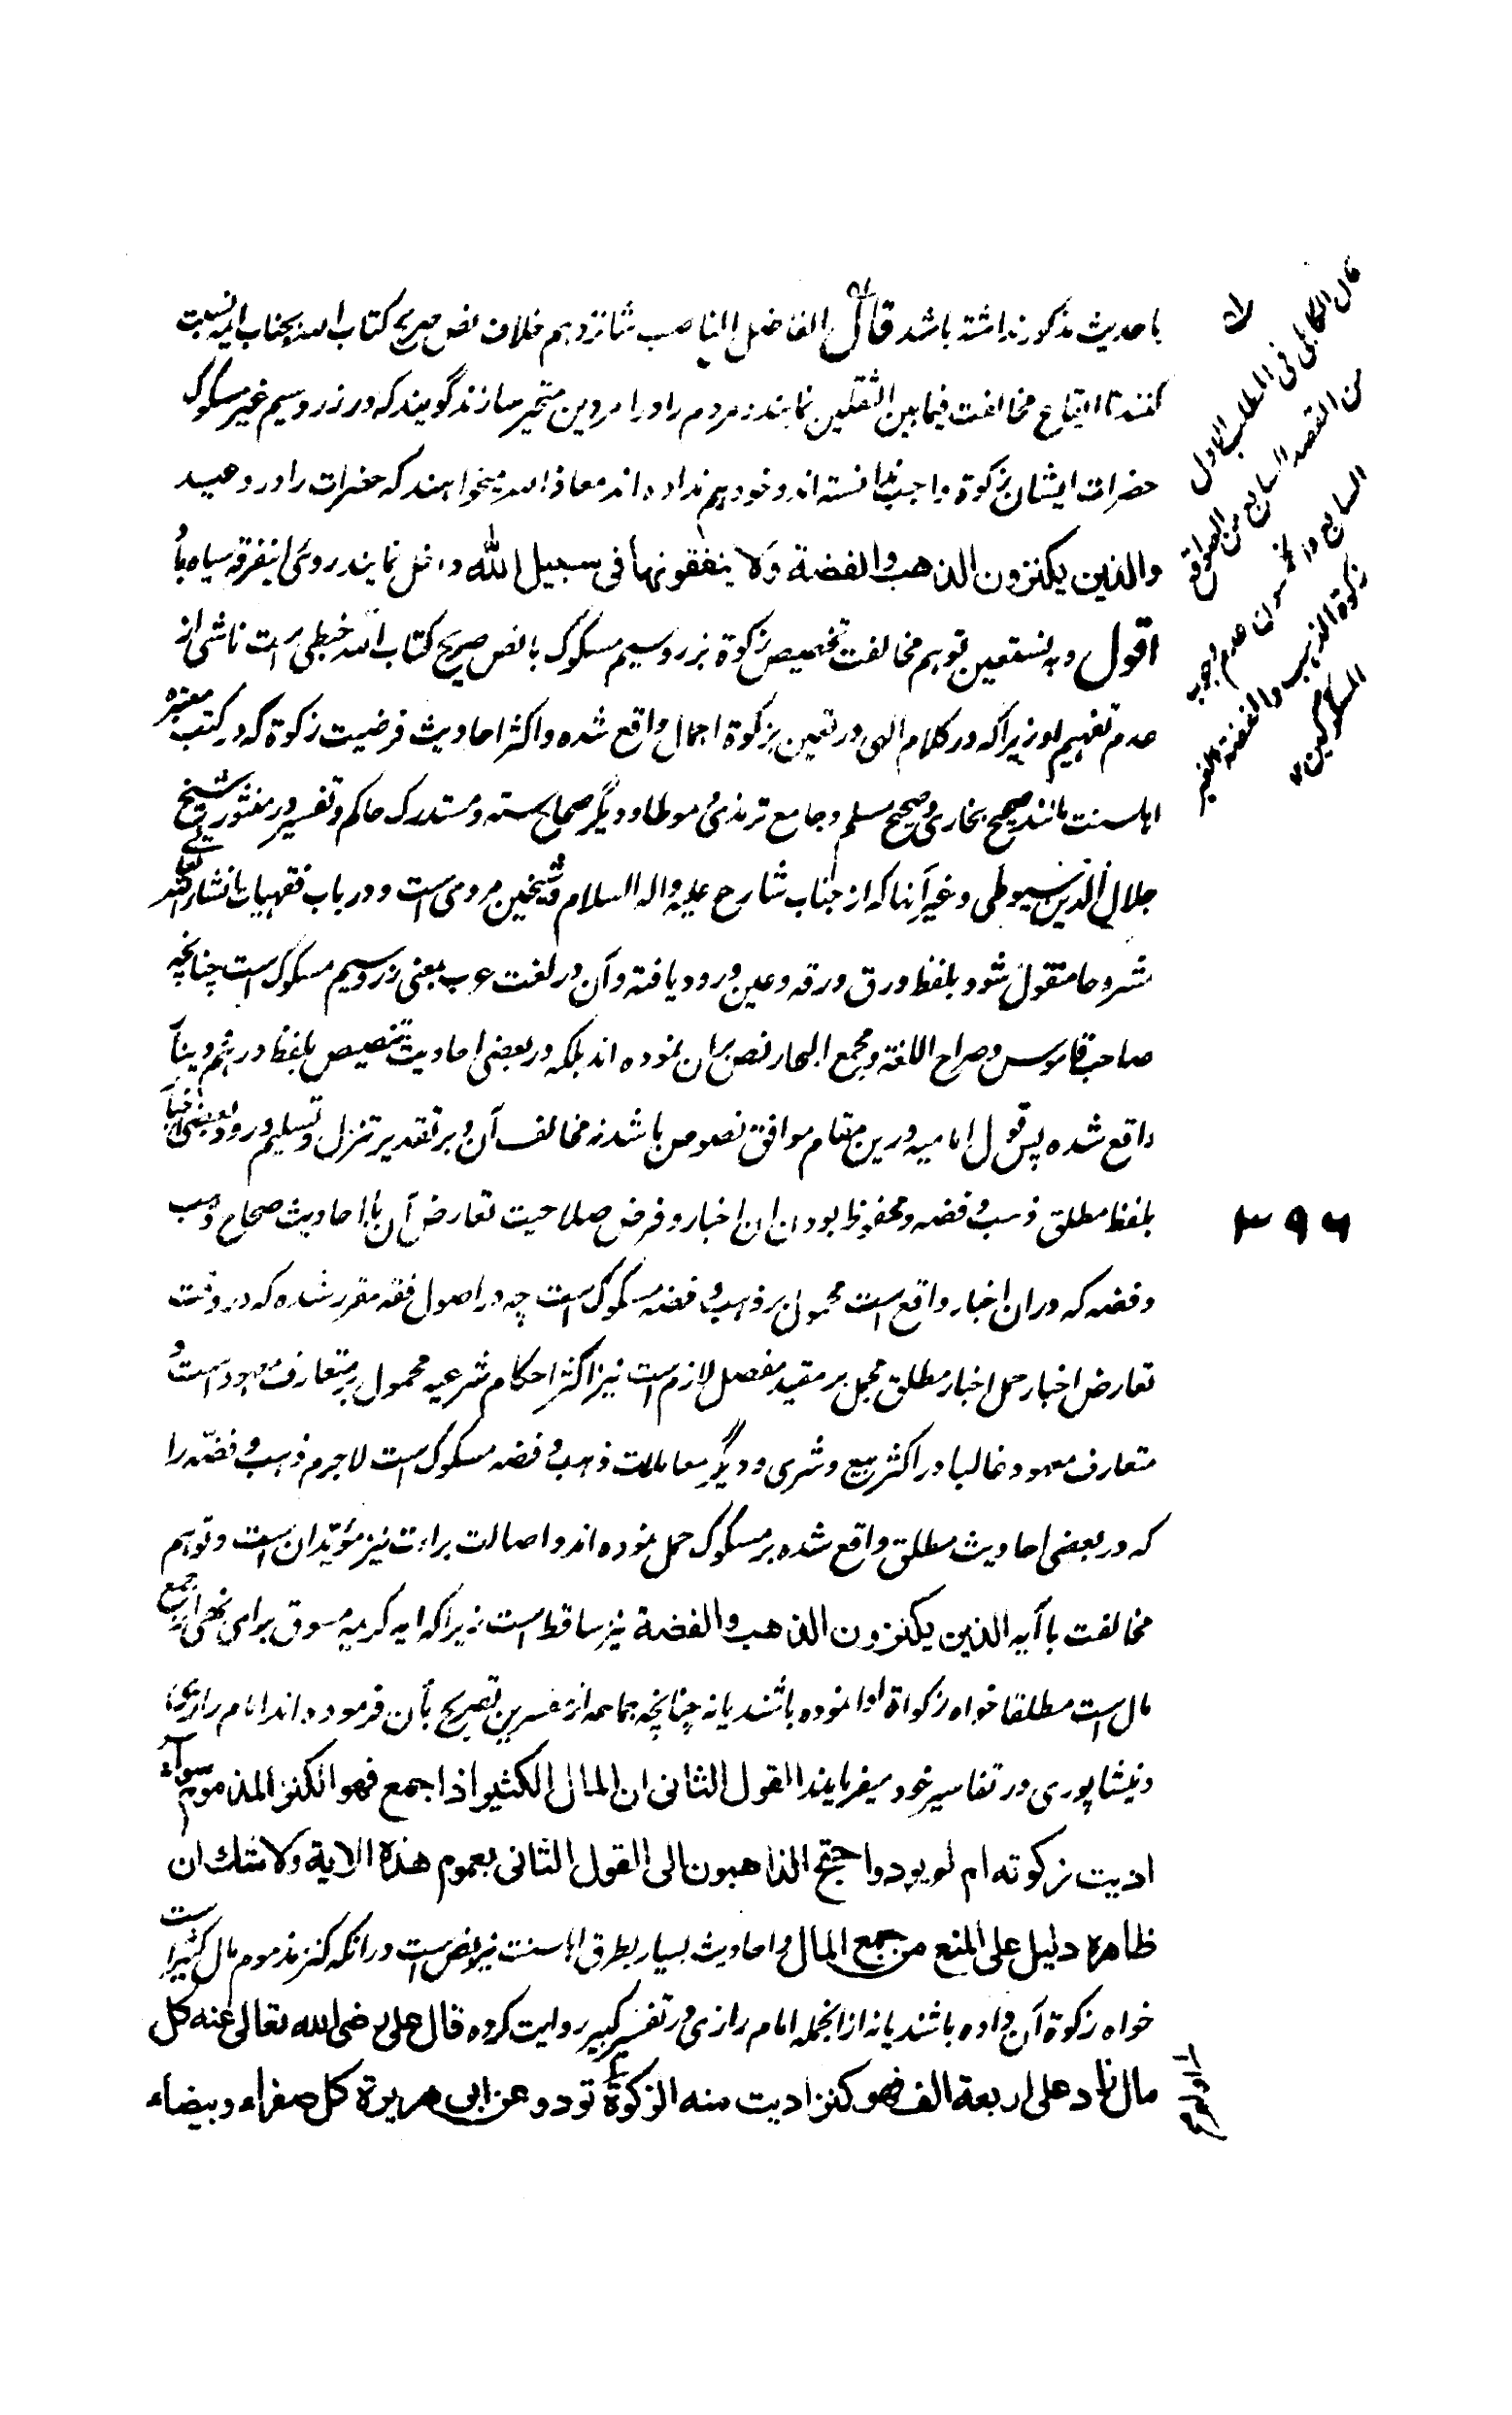 با حدیث مذکور نداشته باشد قال الفاضل الناصب شانزدهم خلاف نص صریح کتاب الله بجناب ائمه نسبت
کنند تا ایقاع مخالفت فیما بین الثقلین نمایند و مردم را در امر دین متحیر سازند گویند که در زر و سیم غیر مسکوک
حضرات ایشان زکوة واجب ندانسته اند و خود هم نداده اند معاذ الله میخواهند که حضرات را در وعید
والذین یکنزون الذهب والفضة ولا ینفقونها فی سبیل الله داخل نمایند روی اینفرقه سیاه باد
اقول وبه نستعین توهم مخالفت تخصیص زکوة بزر و سیم مسکوک با نص صریح کتاب الله خبطی است ناشی از
عدم تفهیم او زیرا که در کلام الهی در تعین زکوة اجمال واقع شده و اکثر احادیث فرضیت زکوة که در کتب معتبره
اهل سنت مانند صحیح بخاری و صحیح مسلم و جامع ترمذی و موطا و دیگر صحاح سته و مستدرک حاکم و تفسیر در منثور شیخ
جلال الدین سیوطی و غیر آنها که از جناب شارع علیه واله السلام و شیخین مروی است و در باب فقهیات انشاء الله تعالی
مشروحا منقول شود بلفظ ورق و رقه و عین ورود یافته و آن در لغت عرب بمعنی زر و سیم مسکوک است چنانچه
صاحب قاموس و صراح اللغة و مجمع البحار نص بران نموده اند بلکه در بعضی احادیث تنصیص بلفظ درهم و دینار
واقع شده پس قول امامیه درین مقام موافق نصوص باشد نه مخالف آن و بر تقدیر تنزل و تسلیم ورود بعضی اخبار
بلفظ مطلق ذهب و فضه و محفوظ بودن ان اخبار و فرض صلاحیت تعارض آن با احادیث صحاح ذهب
و فضه که دران اخبار واقع است محمول بر ذهب و فضه مسکوک است چه در اصول فقه مقرر شده که در وقت
تعارض اخبار حمل اخبار مطلق مجمل بر مقید مفصل لازم است نیز اکثر احکام شرعیه محمول بر متعارف معهود است و
متعارف معهود غالبا در اکثر بیع و شری و دیگر معاملات ذهب و فضه مسکوک است لاجرم ذهب و فضّه را
که در بعضی احادیث مطلق واقع شده بر مسکوک حمل نموده اند و اصالت براءت نیز مؤیّد ان است و توهم
مخالفت با آیه الذین یکنزون الذهب والفضة نیز ساقط است زیرا که ایه کریمه مسوق برای نهی از جمع
مال است مطلقا خواه زکواة ادا نموده باشند یا نه چنانچه جماعه از مفسرین تصریح بآن فرموده اند امام رازی
و نیشاپوری در تفاسیر خود میفرمایند القول الثانی ان المال الکثیر اذا جمع فهو الکنز المذموم سواء
ادیت زکوته ام لم یود واحتج الذاهبون الی القول الثانی بعموم هذه الایة ولا شك ان
ظاهره دلیل علی المنع من جمع المال و احادیث بسیار بطرق اهل سنت نیز نص است درانکه کنز مذموم مال کثیر است
خواه زکوة آن داده باشند یا نه ازانجمله امام رازی در تفسیر کبیر روایت کرده قال علی رضی الله تعالی عنه کل
مال زاد علی اربعة الف فهو کنز ادیت منه الزکوة او لم تود وعن ابی هریرة کل صفراء وبیضاء
قال الکابلی فی المطلب الاول
من المقصد السابع من الصواقع
زکوة الذهب والفضة الغیر
المسکوکین
۳۹۶